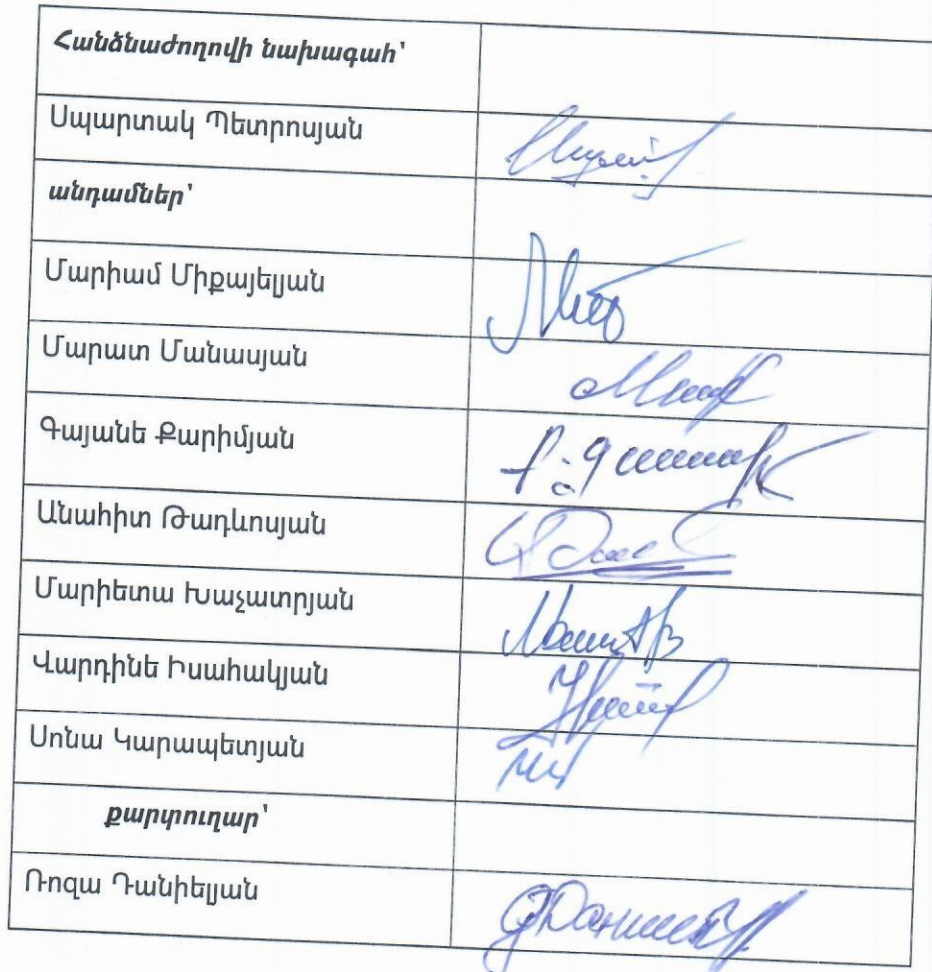 Հանձնաժողովի նախագահ՝
Սպարտակ Պետրոսյան
անդամներ՝
Մարիամ Միքայելյան
Մարատ Մանասյան
Գայանե Քարիմյան
Անահիտ Թադևոսյան
Մարիետա Խաչատրյան
Վարդինե Իսահակյան
Սոնա Կարապետյան
քարտուղար՝
Ռոզա Դանիելյան